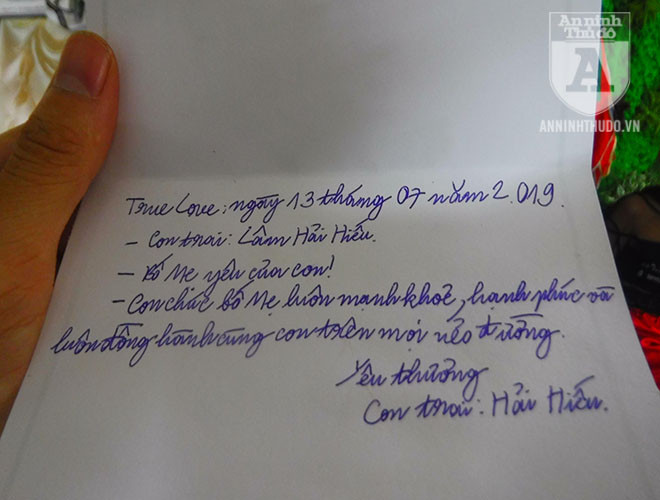 An ninh
Thủ đô
A
ANNINHTHUDO.VN
True Love: ngày 13 tháng 07 năm 2.019.
- Con trai: Lâm Hải Hiếu.
- Bố Mẹ yêu của con!
- Con chúc bố Mẹ luôn mạnh khoẻ, hạnh phúc và
luôn đồng hành cùng con trên mọi nẻo đường.
Yêu thương
Con trai: Hải Hiếu.